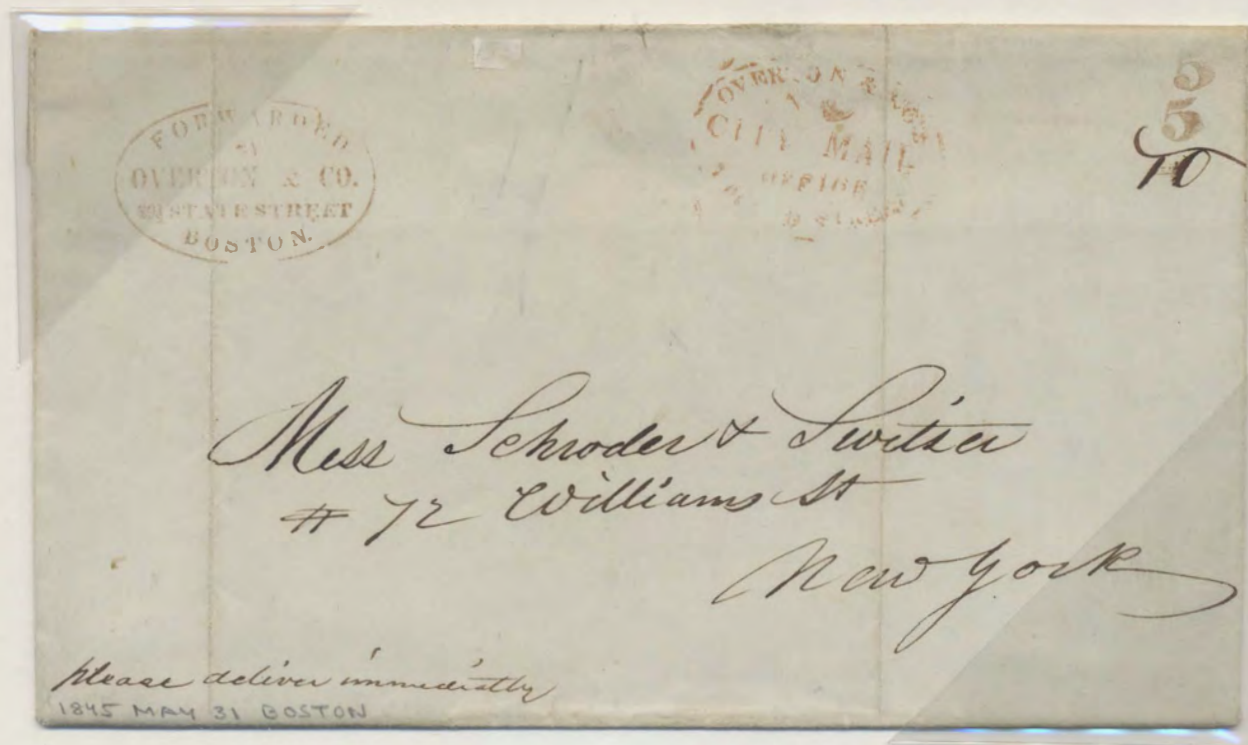 FORWARDED
OVERTON & CO.
STATE STREET
BOSTON.
OVERTON &
CITY MAIL
OFFICE
5
5
10
Mess Schroder & Switzer
# 72 Williams St
New York
please deliver immediatly
1845 MAY 31 BOSTON